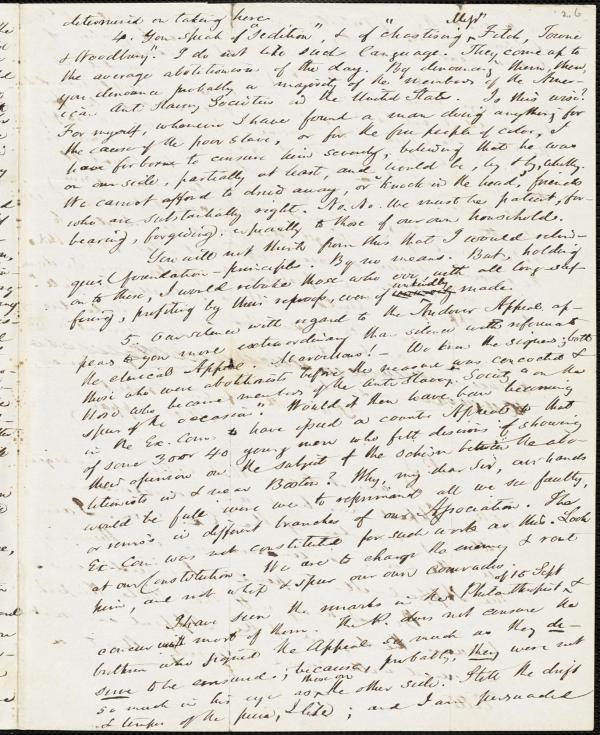 26
determined on taking here
4. You speak of "sedition", & of "chastising Messrs Fitch, Towne
& Woodbury". I do not like such language. They come up to
the average abolitionism of the day. By denouncing them, then,
you denounce probably a majority of the members of the Ame-
rican Anti Slavery Societies in the United States. Is this wise?
For myself, whenever I have found a man doing anything for
the cause of the poor slave, or for the free people of color, I
have forborne to censure him severely, believing that he was
on our side, partially at least, and would be, by & by, wholly.
We cannot afford to drive away, or "knock in the head," friends
who are substantially right. No. No. We must be patient, for-
bearing, forgiving, especially to those of our own household.
You will not think from this that I would relin-
quish foundation-principles. By no means. But, holding
on to these, I would rebuke those who err, with all long suf-
fering, profiting by their reproof, even if unkindly made.
5. Our silence with regard to the Andover Appeal ap-
pears to you more extraordinary than silence with reference to
the clerical Appeal. Marvellous! - We knew the signers; both
those who were abolitionists before the measure was concocted &
those who became members of the Anti Slavery Society "on the
spur of the occasion". Would it then have been becoming
in the Ex. Com. to have issued a counter Appeal to that
of some 30 or 40 young men who felt desirous of showing
their opinion on the subject of the schism between the abo-
litionists in & near Boston? Why, my dear Sir, our hands
would be full were we to reprimand all we see faulty,
or remiss in different branches of our Association. The
Ex. Com. was not constituted for such work as this. Look
at our Constitution. We are to charge the enemy & rout
him, and not whip & spur our own comrades.
I have seen the remarks in the Philanthropist of 15 Sept &
concur with most of them. The P. does not censure the
brethren who signed the Appeal so much as they de-
serve to be censured; because, probably, they were not
so much in his eye as those on the other side. Still the drift
& temper of the piece, I like; and I am persuaded